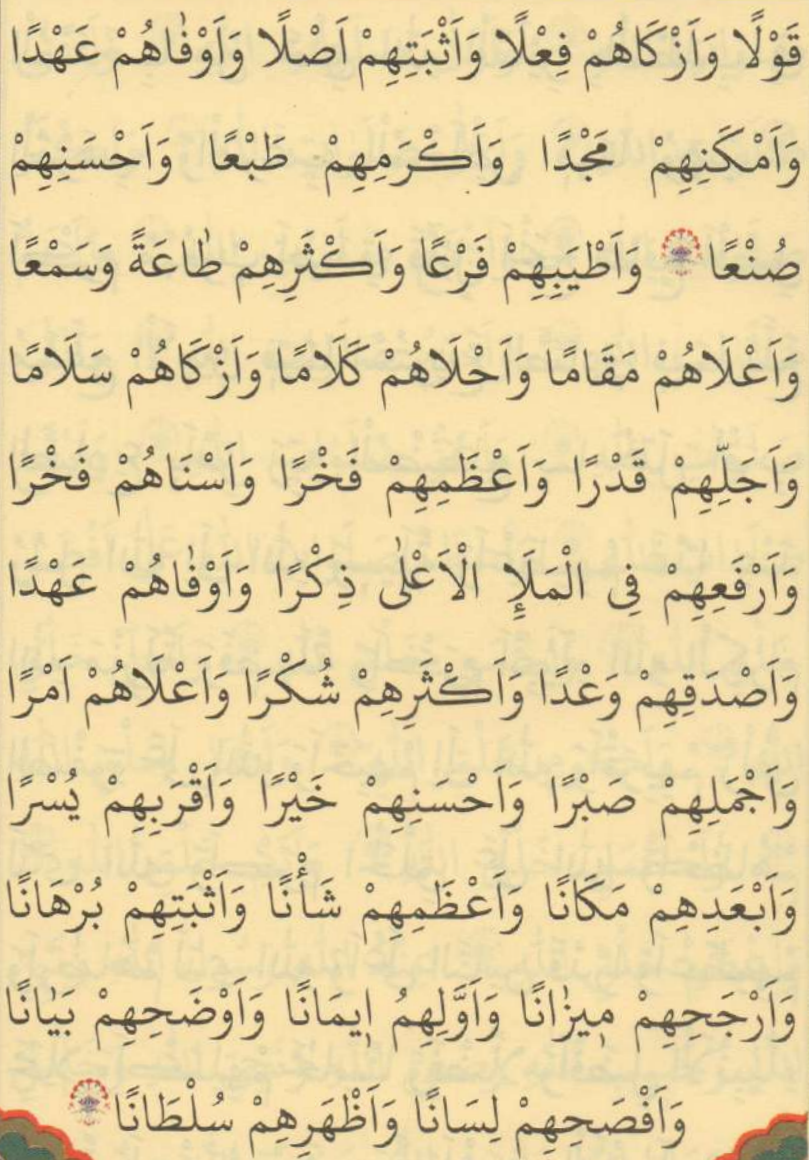 قَوْلًا وَاَزْكَاهُمْ فِعْلًا وَاَثْبَتِهِمْ اَصْلًا وَاَوْفٰاهُمْ عَهْدًا
وَاَمْكَنِهِمْ مَجْدًا وَاَكْرَمِهِمْ طَبْعًا وَاَحْسَنِهِمْ
صُنْعًا وَاَطْيَبِهِمْ فَرْعًا وَاَكْثَرِهِمْ طٰاعَةً وَسَمْعًا
وَاَعْلَاهُمْ مَقَامًا وَاَحْلَاهُمْ كَلَامًا وَاَزْكَاهُمْ سَلَامًا
وَاَجَلِّهِمْ قَدْرًا وَاَعْظَمِهِمْ فَخْرًا وَاَسْنَاهُمْ فَخْرًا
وَاَرْفَعِهِمْ فِى الْمَلَإِ الْاَعْلٰى ذِكْرًا وَاَوْفٰاهُمْ عَهْدًا
وَاَصْدَقِهِمْ وَعْدًا وَاَكْثَرِهِمْ شُكْرًا وَاَعْلَاهُمْ اَمْرًا
وَاَجْمَلِهِمْ صَبْرًا وَاَحْسَنِهِمْ خَيْرًا وَاَقْرَبِهِمْ يُسْرًا
وَاَبْعَدِهِمْ مَكَانًا وَاَعْظَمِهِمْ شَأْنًا وَاَثْبَتِهِمْ بُرْهَانًا
وَاَرْجَحِهِمْ مٖيزٰانًا وَاَوَّلِهِمُ اٖيمَانًا وَاَوْضَحِهِمْ بَيٰانًا
وَاَفْصَحِهِمْ لِسَانًا وَاَظْهَرِهِمْ سُلْطَانًا